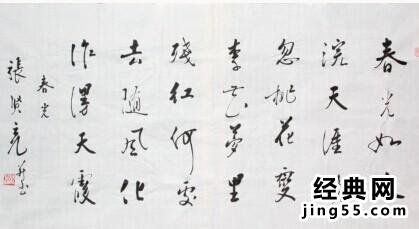 春光如
浣天涯
忽桃花变
李花梦里
残红何处
去随风化
作漫天霞
春光
張贤亮并书
经典网
jing55.com